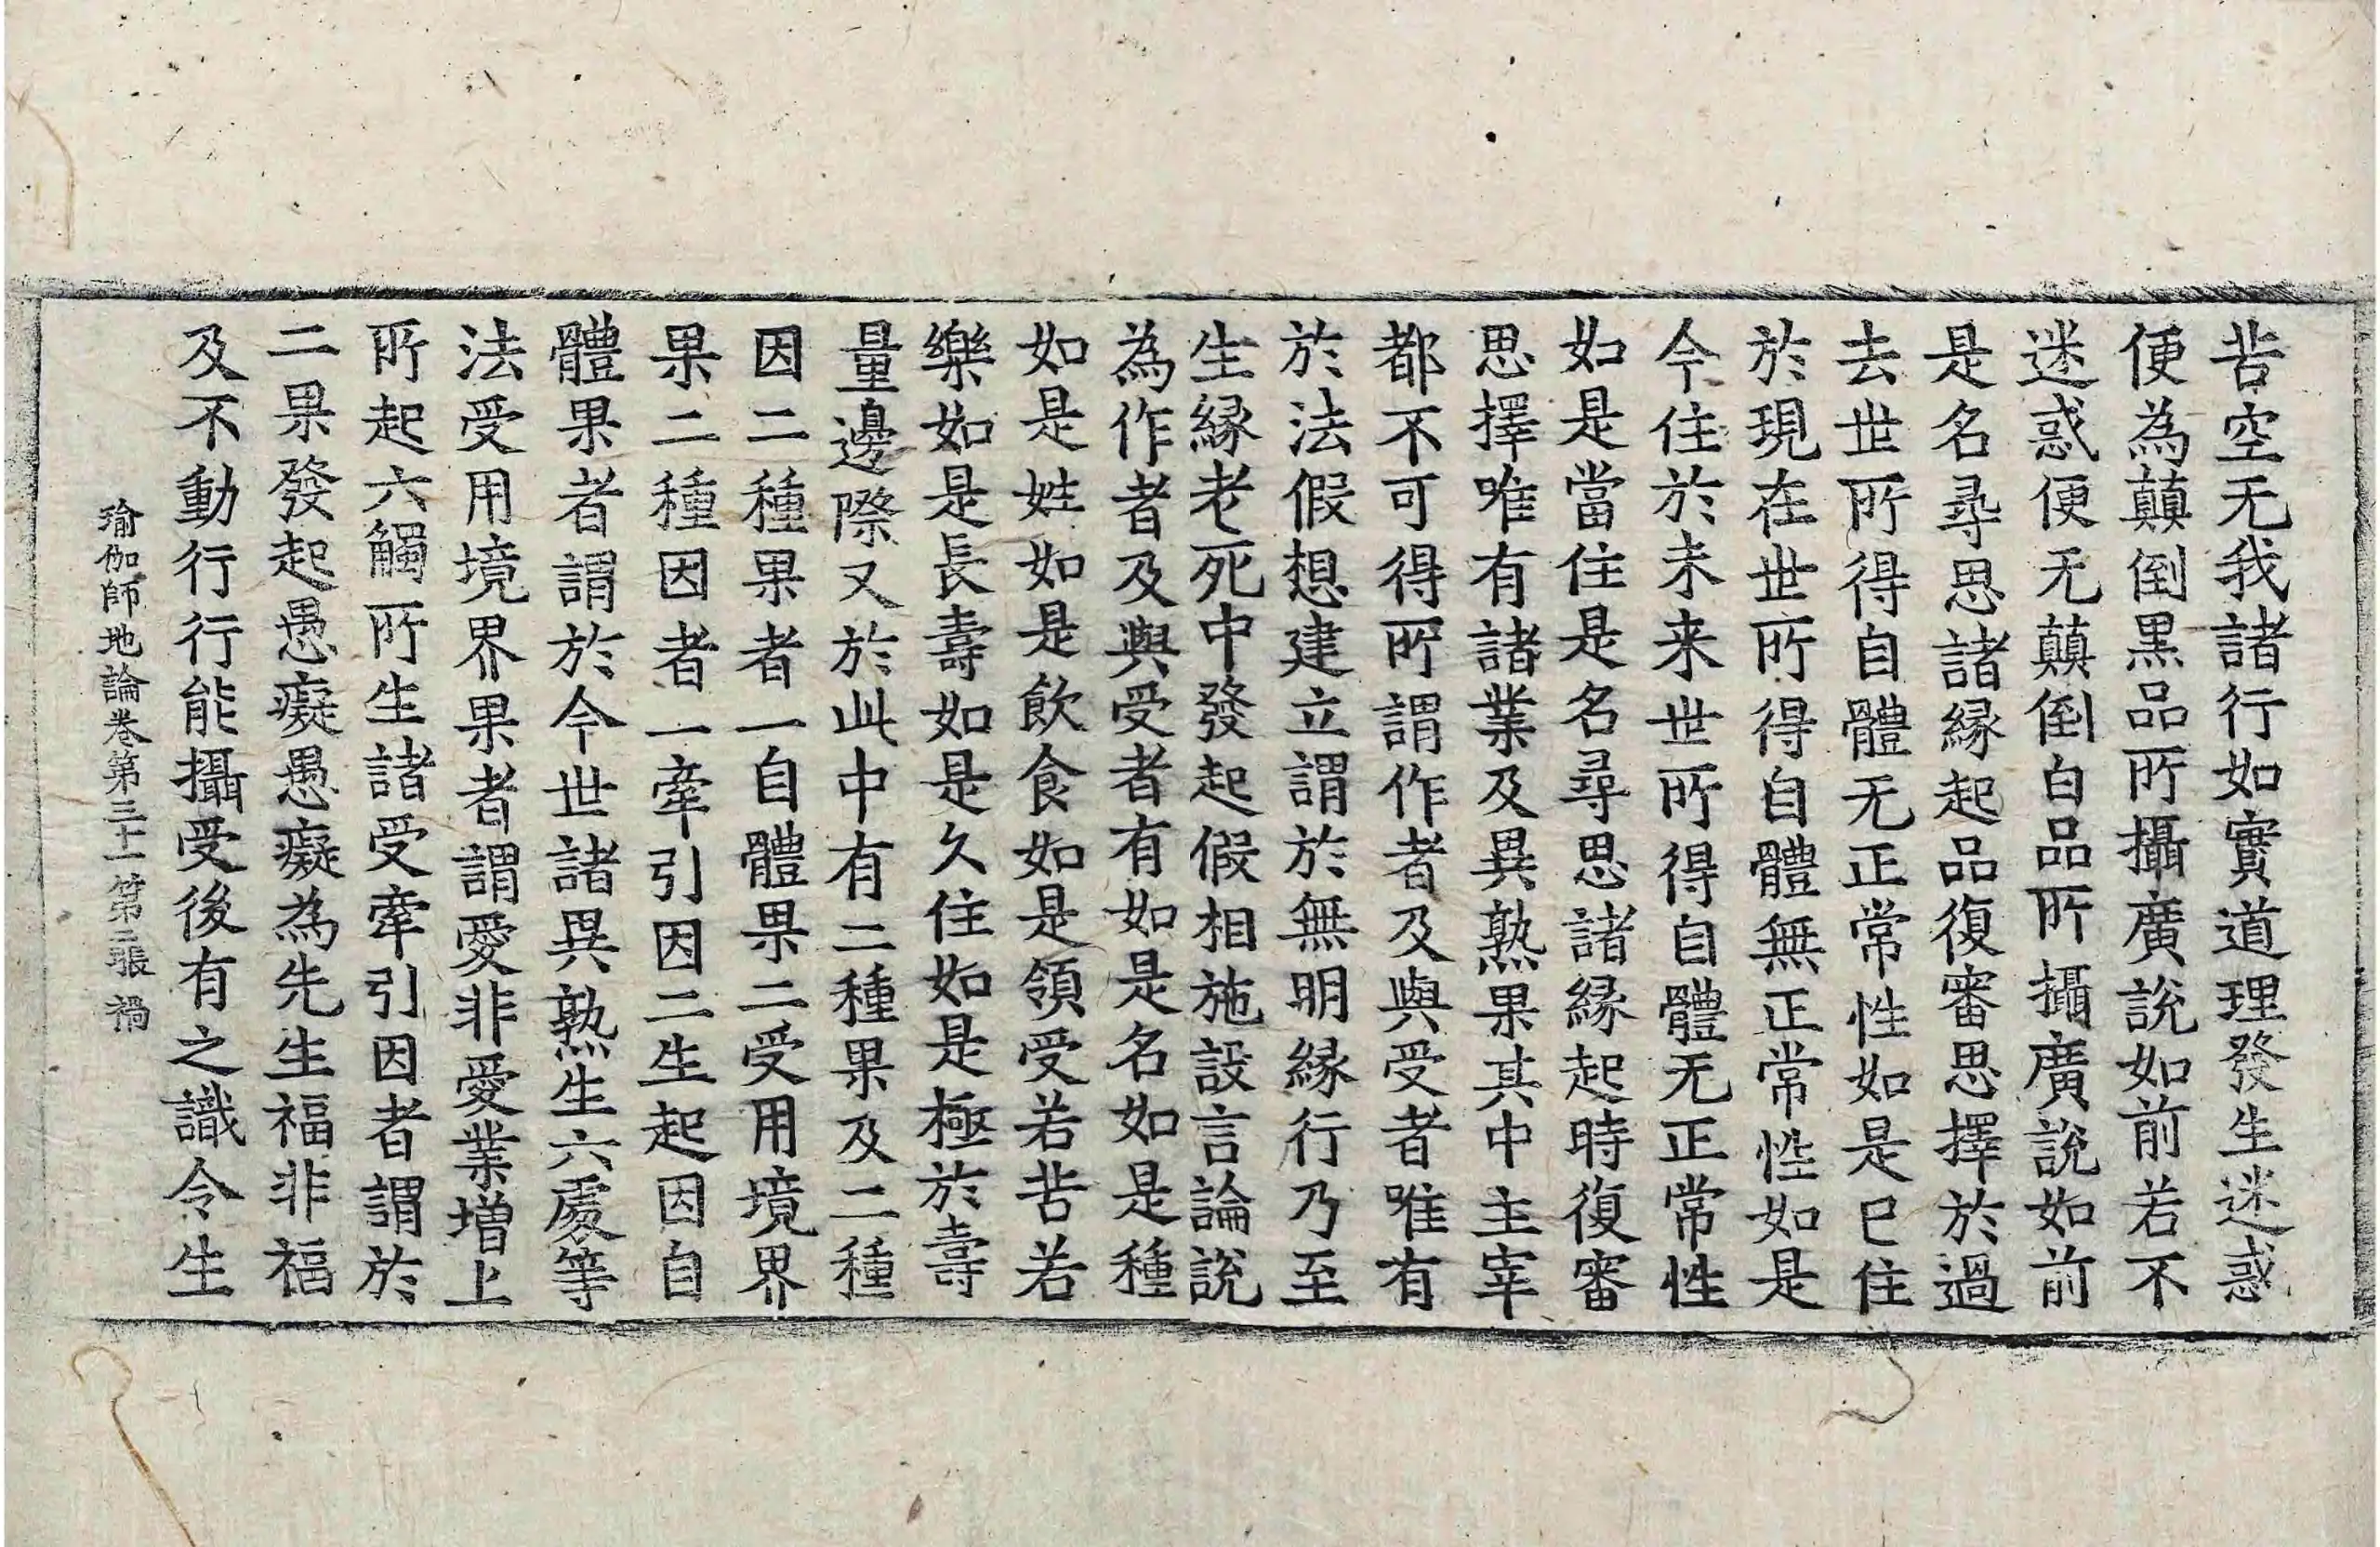 苦空无我諸行如實道理發生迷惑
便為顛倒黒品所攝廣說如前若不
迷惑便无顛倒白品所攝廣說如前
是名尋思諸緣起品復審思擇於過
去世所得自體无正常性如是已住
於現在世所得自體無正常性如是
今住於未来世所得自體无正常性
如是當住是名尋思諸緣起時復審
思擇唯有諸業及異熟果其中主宰
都不可得所謂作者及與受者唯有
於法假想建立謂於無明緣行乃至
生緣老死中發起假相施設言論說
為作者及與受者有如是名如是種
如是姓如是飲食如是領受若苦若
樂如是長壽如是久住如是極於壽
量邊際又於此中有二種果及二種
因二種果者一自體果二受用境界
果二種因者一牽引因二生起因自
體果者謂於今世諸異熟生六處等
法受用境界果者謂愛非愛業增上
所起六觸所生諸受牽引因者謂於
二果發起愚癡愚癡為先生福非福
及不動行行能攝受後有之識令生
瑜伽師地論卷第三十一第二張 禍